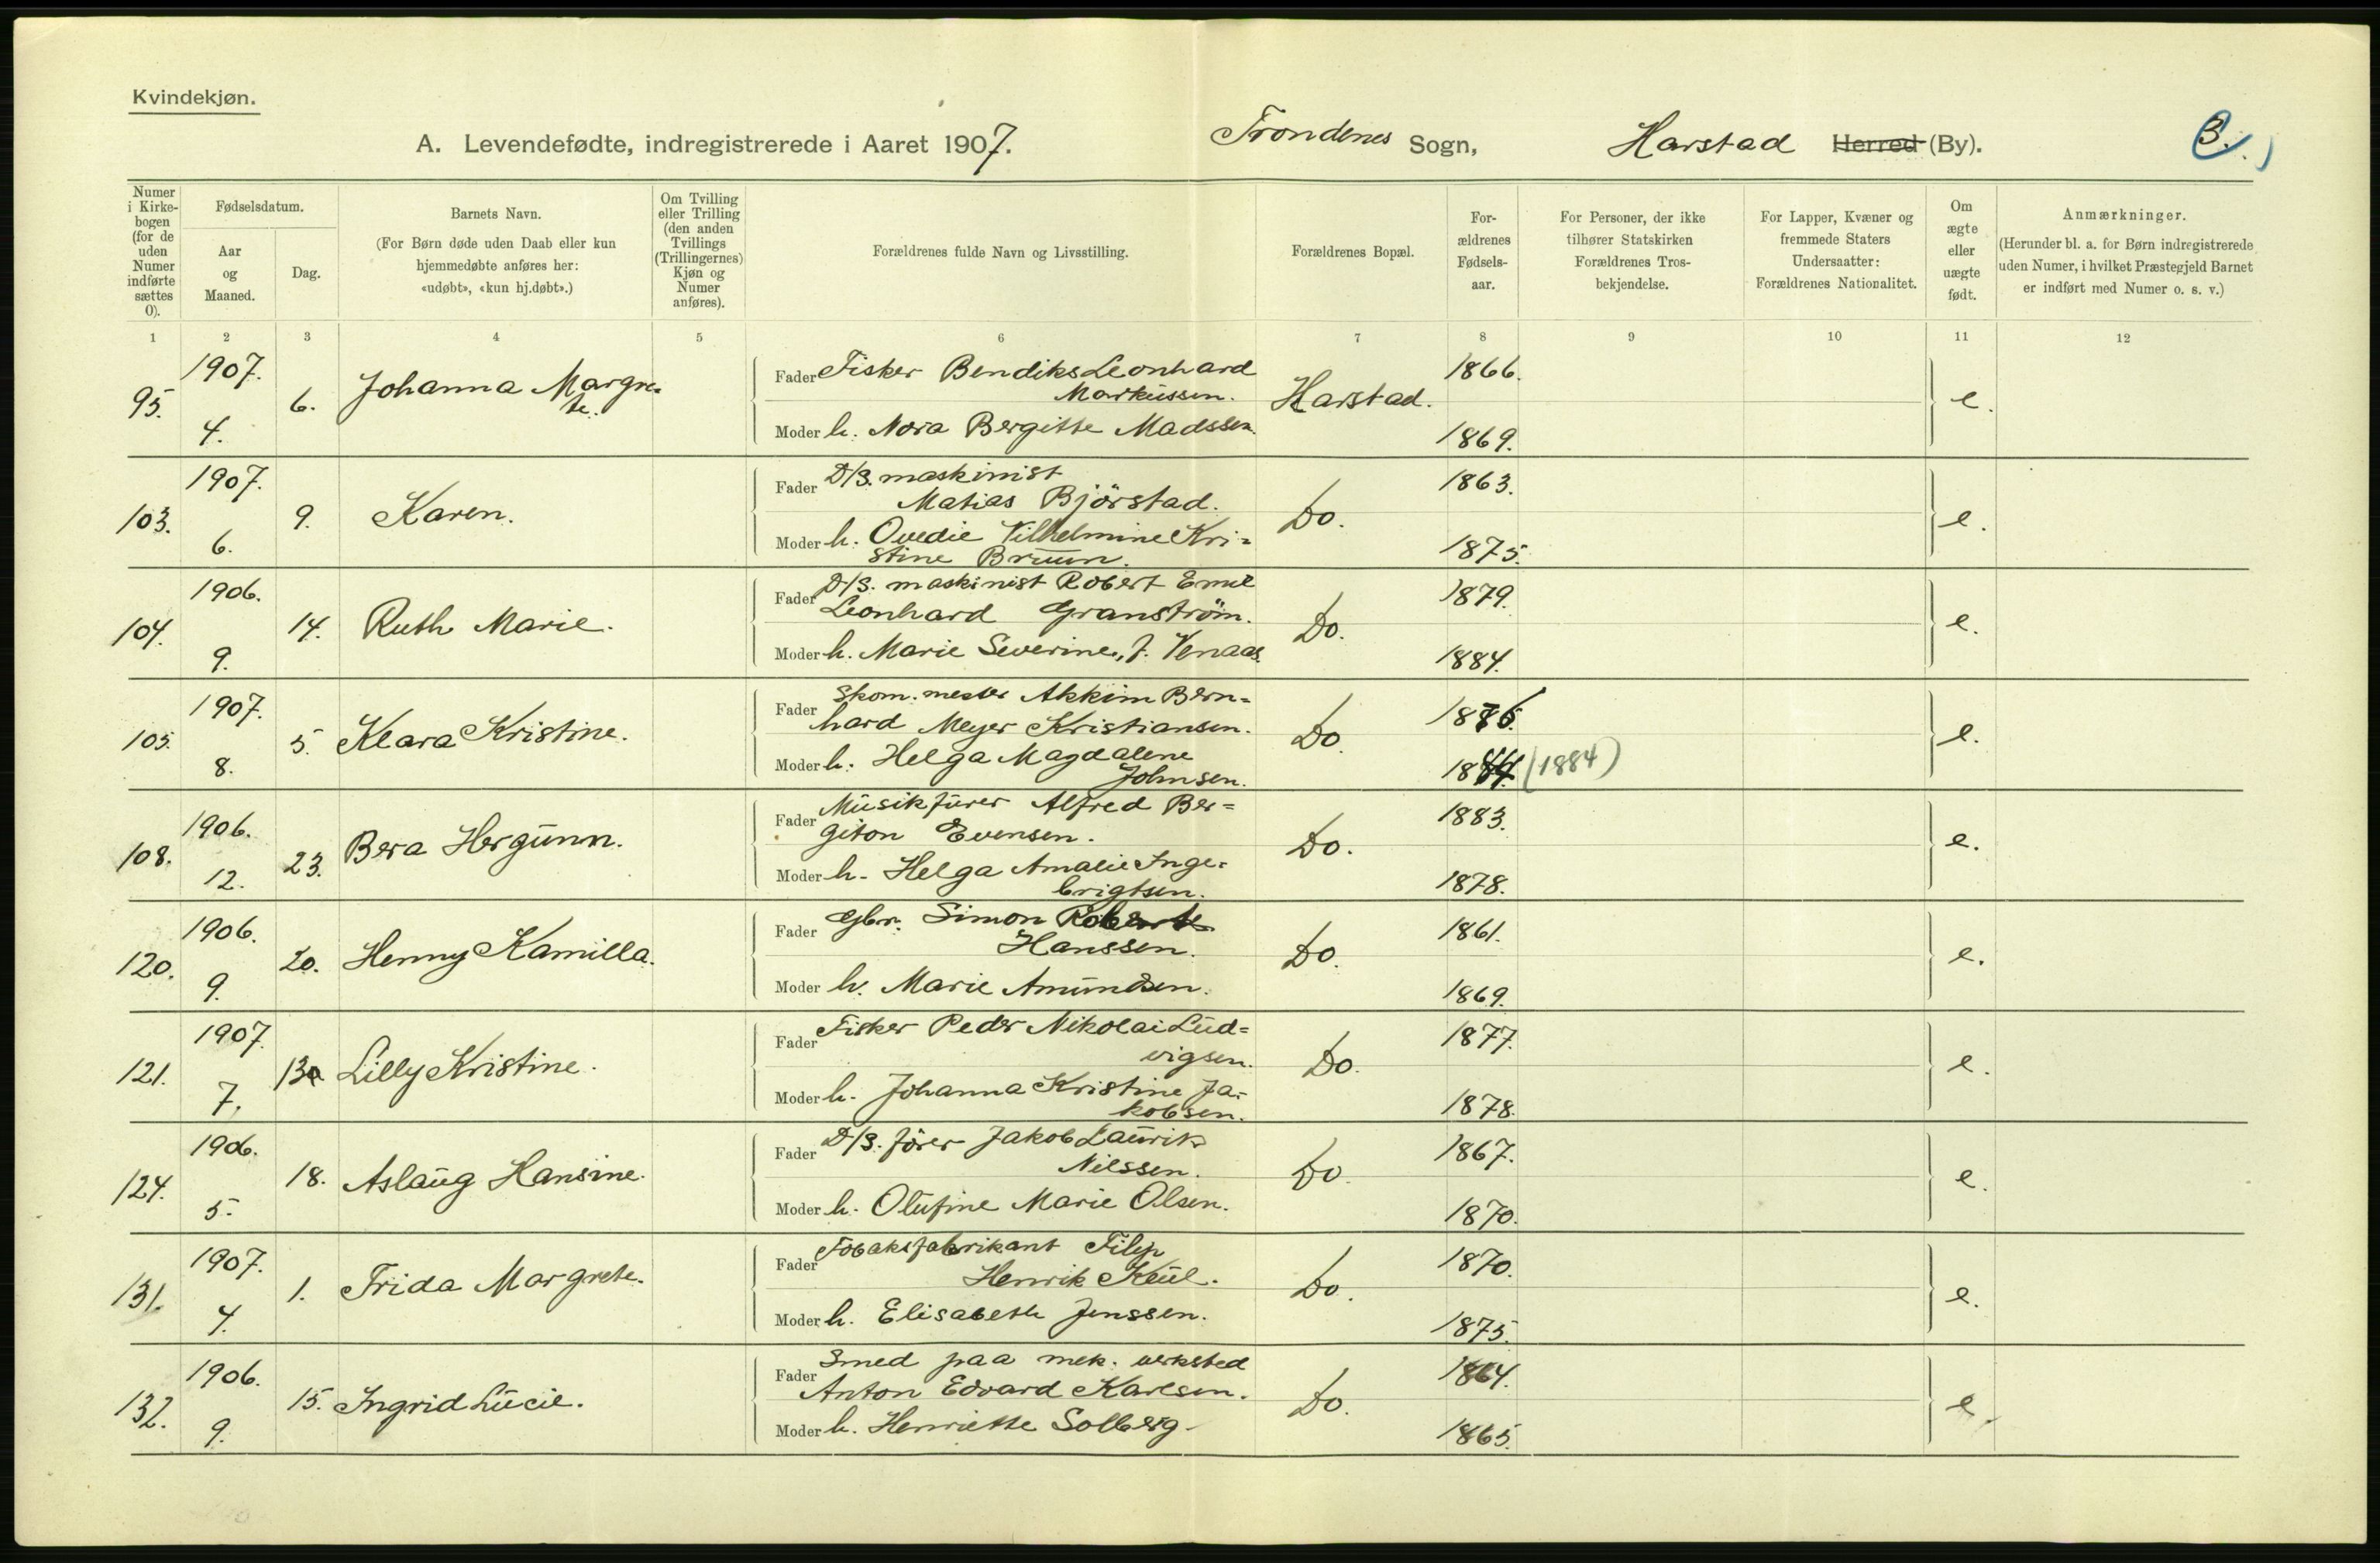 Kvindekjøn.
A. Levendefødte, indregistrerede i Aaret 1907. Trondenes Sogn, Harstad Herred (By). 3.
Numer i Kirkebogen (for de uden Numer indførte sættes 0).
Fødselsdatum.
Aar og Maaned.
Dag.
Barnets Navn.
(For Børn døde uden Daab eller kun hjemmedøbte anføres her: «udøbt», «kun hj.døbt».)
Om Tvilling eller Trilling (den anden Tvillings (Trillingernes) Kjøn og Numer anføres).
Forældrenes fulde Navn og Livsstilling.
Forældrenes Bopæl.
Forældrenes Fødselsaar.
For Personer, der ikke tilhører Statskirken Forældrenes Trosbekjendelse.
For Lapper, Kvæner og fremmede Staters Undersaatter: Forældrenes Nationalitet.
Om ægte eller uægte født.
Anmærkninger.
(Herunder bl. a. for Børn indregistrerede uden Numer, i hvilket Præstegjeld Barnet er indført med Numer o. s. v.)
1 2 3 4 5 6 7 8 9 10 11 12
95. 1907. 4. 6. Johanna Margre=
te.
Fader Fisker Bendiks Leonhard
Markussen. Harstad. 1866. e.
Moder h. Nora Bergitte Madssen. 1869.
103. 1907. 6. 9. Karen.
Fader D/S. maskinist
Matias Björstad. Do. 1863. e.
Moder h. Ovedie Vilhelmine Kri=
stine Bruun. 1875.
104. 1906. 9. 14. Ruth Marie.
Fader D/S. maskinist Robert Emil
Leonhard Granström. Do. 1879. e.
Moder h. Marie Severine, f. Venaas. 1884.
105. 1907. 8. 5. Klara Kristine.
Fader Skom. mester Akkim Bern=
hard Meyer Kristiansen. Do. e.
Moder h. Helga Magdalene
Johnsen. 1884. (1884)
108. 1906. 12. 23. Bera Hergunn.
Fader Musikfürer Alfred Ber=
giton Evensen. Do. 1883. e.
Moder h. Helga Amalie Inge=
brigtsen. 1878.
120. 1906. 9. 20. Henny Kamilla.
Fader Gbr. Simon
Hanssen. Do. 1861. e.
Moder h. Marie Amundsen. 1869.
121. 1907. 7. 13 Lilly Kristine.
Fader Fisker Peder Nikolai Lud=
vigsen. Do. 1877. e.
Moder h. Johanna Kristine Ja=
kobsen. 1878.
124. 1906. 5. 18. Aslaug Hansine.
Fader D/S. förer Jakob Laurits
Nilssen. Do. 1867. e.
Moder h. Olufine Marie Olsen. 1870.
131. 1907. 4. 1. Frida Margrete.
Fader Tobaksfabrikant Filip
Henrik Keul. Do. 1870. e.
Moder h. Elisabeth Jenssen. 1875.
132. 1906. 9. 15. Ingrid Lucie.
Fader Smed paa mek. verksted
Anton Edvard Karlsen. Do. 1864. e.
Moder h. Henriette Solberg. 1865.